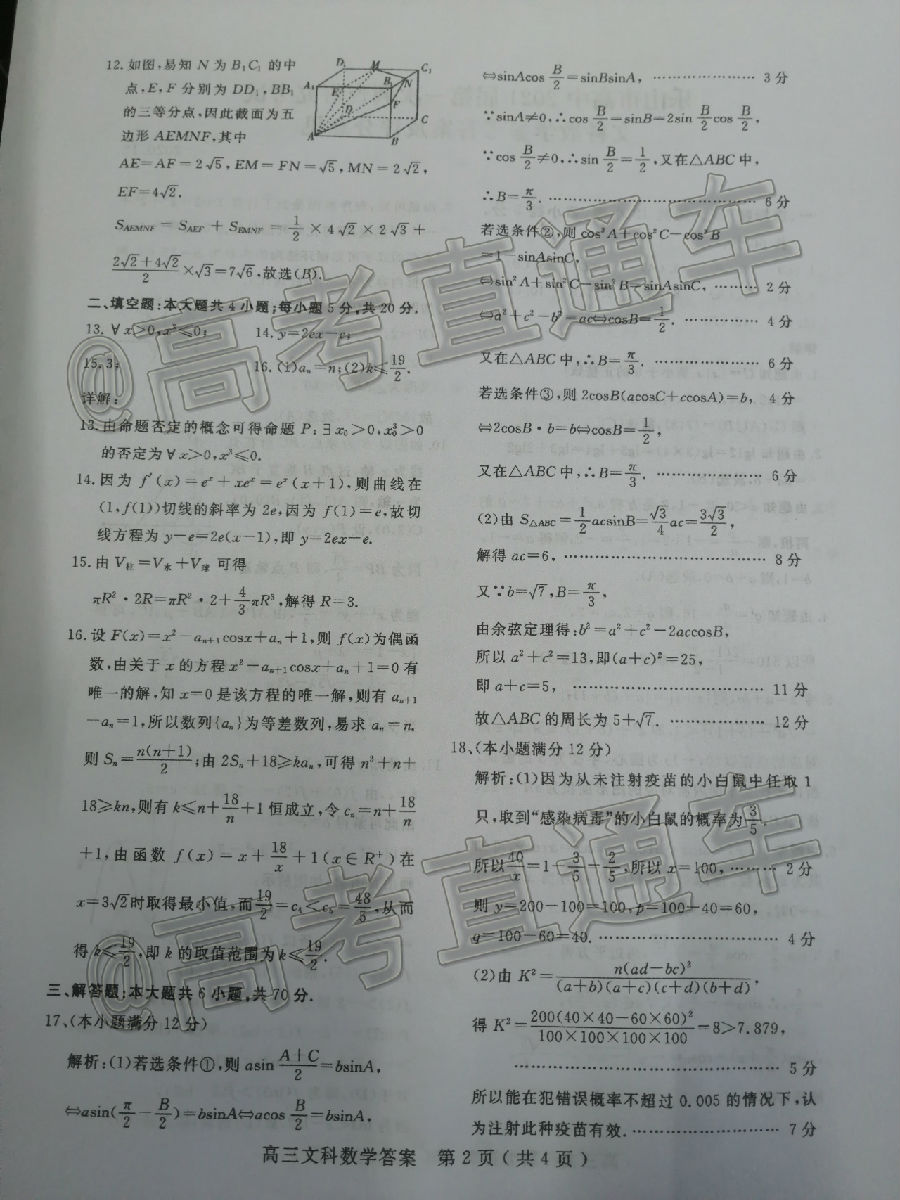 12.如图,易知 N 为 B₁C₁ 的中
点,E,F 分别为 DD₁,BB₁
的三等分点,因此截面为五
边形 AEMNF,其中
AE=AF=2√5,EM=FN=√5,MN=2√2,
EF=4√2.
S_AEMNF = S_AEF + S_EMNF = 1/2 × 4√2 × 2√3 +
(2√2+4√2)/2 ×√3=7√6,故选(B).
二、填空题:本大题共4小题;每小题5分,共20分.
13.∀x>0,x³≤0; 14.y=2ex-e;
15.3; 16.(1)aₙ=n;(2)k≤19/2.
详解:
13.由命题否定的概念可得命题 P:∃x₀>0,x₀³>0
的否定为∀x>0,x³≤0.
14.因为 f′(x)=eˣ+xeˣ=eˣ(x+1),则曲线在
(1,f(1))切线的斜率为2e,因为f(1)=e,故切
线方程为y-e=2e(x-1),即y=2ex-e.
15.由V柱=V水+V球 可得
πR²·2R=πR²·2+4/3πR³,解得R=3.
16.设F(x)=x²-aₙ₊₁cosx+aₙ+1,则f(x)为偶函
数,由关于x的方程x²-aₙ₊₁cosx+aₙ+1=0有
唯一的解,知x=0是该方程的唯一解,则有aₙ₊₁
-aₙ=1,所以数列{aₙ}为等差数列,易求aₙ=n.
则Sₙ=n(n+1)/2;由2Sₙ+18≥kaₙ,可得n²+n+
18≥kn,则有k≤n+18/n+1恒成立,令cₙ=n+18/n
+1,由函数f(x)=x+18/x+1(x∈R⁺)在
x=3√2时取得最小值,而19/2=c₄<c₅=48/5,从而
得k≤19/2,即k的取值范围为k≤19/2.
三、解答题:本大题共6小题,共70分.
17.(本小题满分12分)
解析:(1)若选条件①,则asin (A+C)/2=bsinA,
⇔asin(π/2-B/2)=bsinA⇔acos B/2=bsinA,
⇔sinAcos B/2=sinBsinA, ………………3分
∵sinA≠0,∴cos B/2=sinB=2sin B/2 cos B/2,
∵cos B/2≠0,∴sin B/2=1/2,又在△ABC中,
∴B=π/3. ………………6分
若选条件②,则cos²A+cos²C-cos²B
=1-sinAsinC,
⇔sin²A+sin²C-sin²B=sinAsinC, ………2分
⇔a²+c²-b²=ac⇔cosB=1/2. ………………4分
又在△ABC中,∴B=π/3. ………………6分
若选条件③,则2cosB(acosC+ccosA)=b, 4分
⇔2cosB·b=b⇔cosB=1/2,
又在△ABC中,∴B=π/3. ………………6分
(2)由S△ABC=1/2acsinB=√3/4ac=3√3/2,
解得ac=6, ………………8分
又∵b=√7,B=π/3,
由余弦定理得:b²=a²+c²-2accosB,
所以a²+c²=13,即(a+c)²=25,
即a+c=5, ………………11分
故△ABC的周长为5+√7. ………………12分
18.(本小题满分12分)
解析:(1)因为从未注射疫苗的小白鼠中任取1
只,取到“感染病毒”的小白鼠的概率为3/5.
所以40/x=1-3/5=2/5,所以x=100, ………2分
则y=200-100=100,p=100-40=60,
q=100-60=40. ………………4分
(2)由K²=n(ad-bc)²/((a+b)(a+c)(c+d)(b+d)),
得K²=200(40×40-60×60)²/(100×100×100×100)=8>7.879,
………………5分
所以能在犯错误概率不超过0.005的情况下,认
为注射此种疫苗有效. ………………7分
高三文科数学答案 第2页(共4页)
@高考直通车
@高考直通车